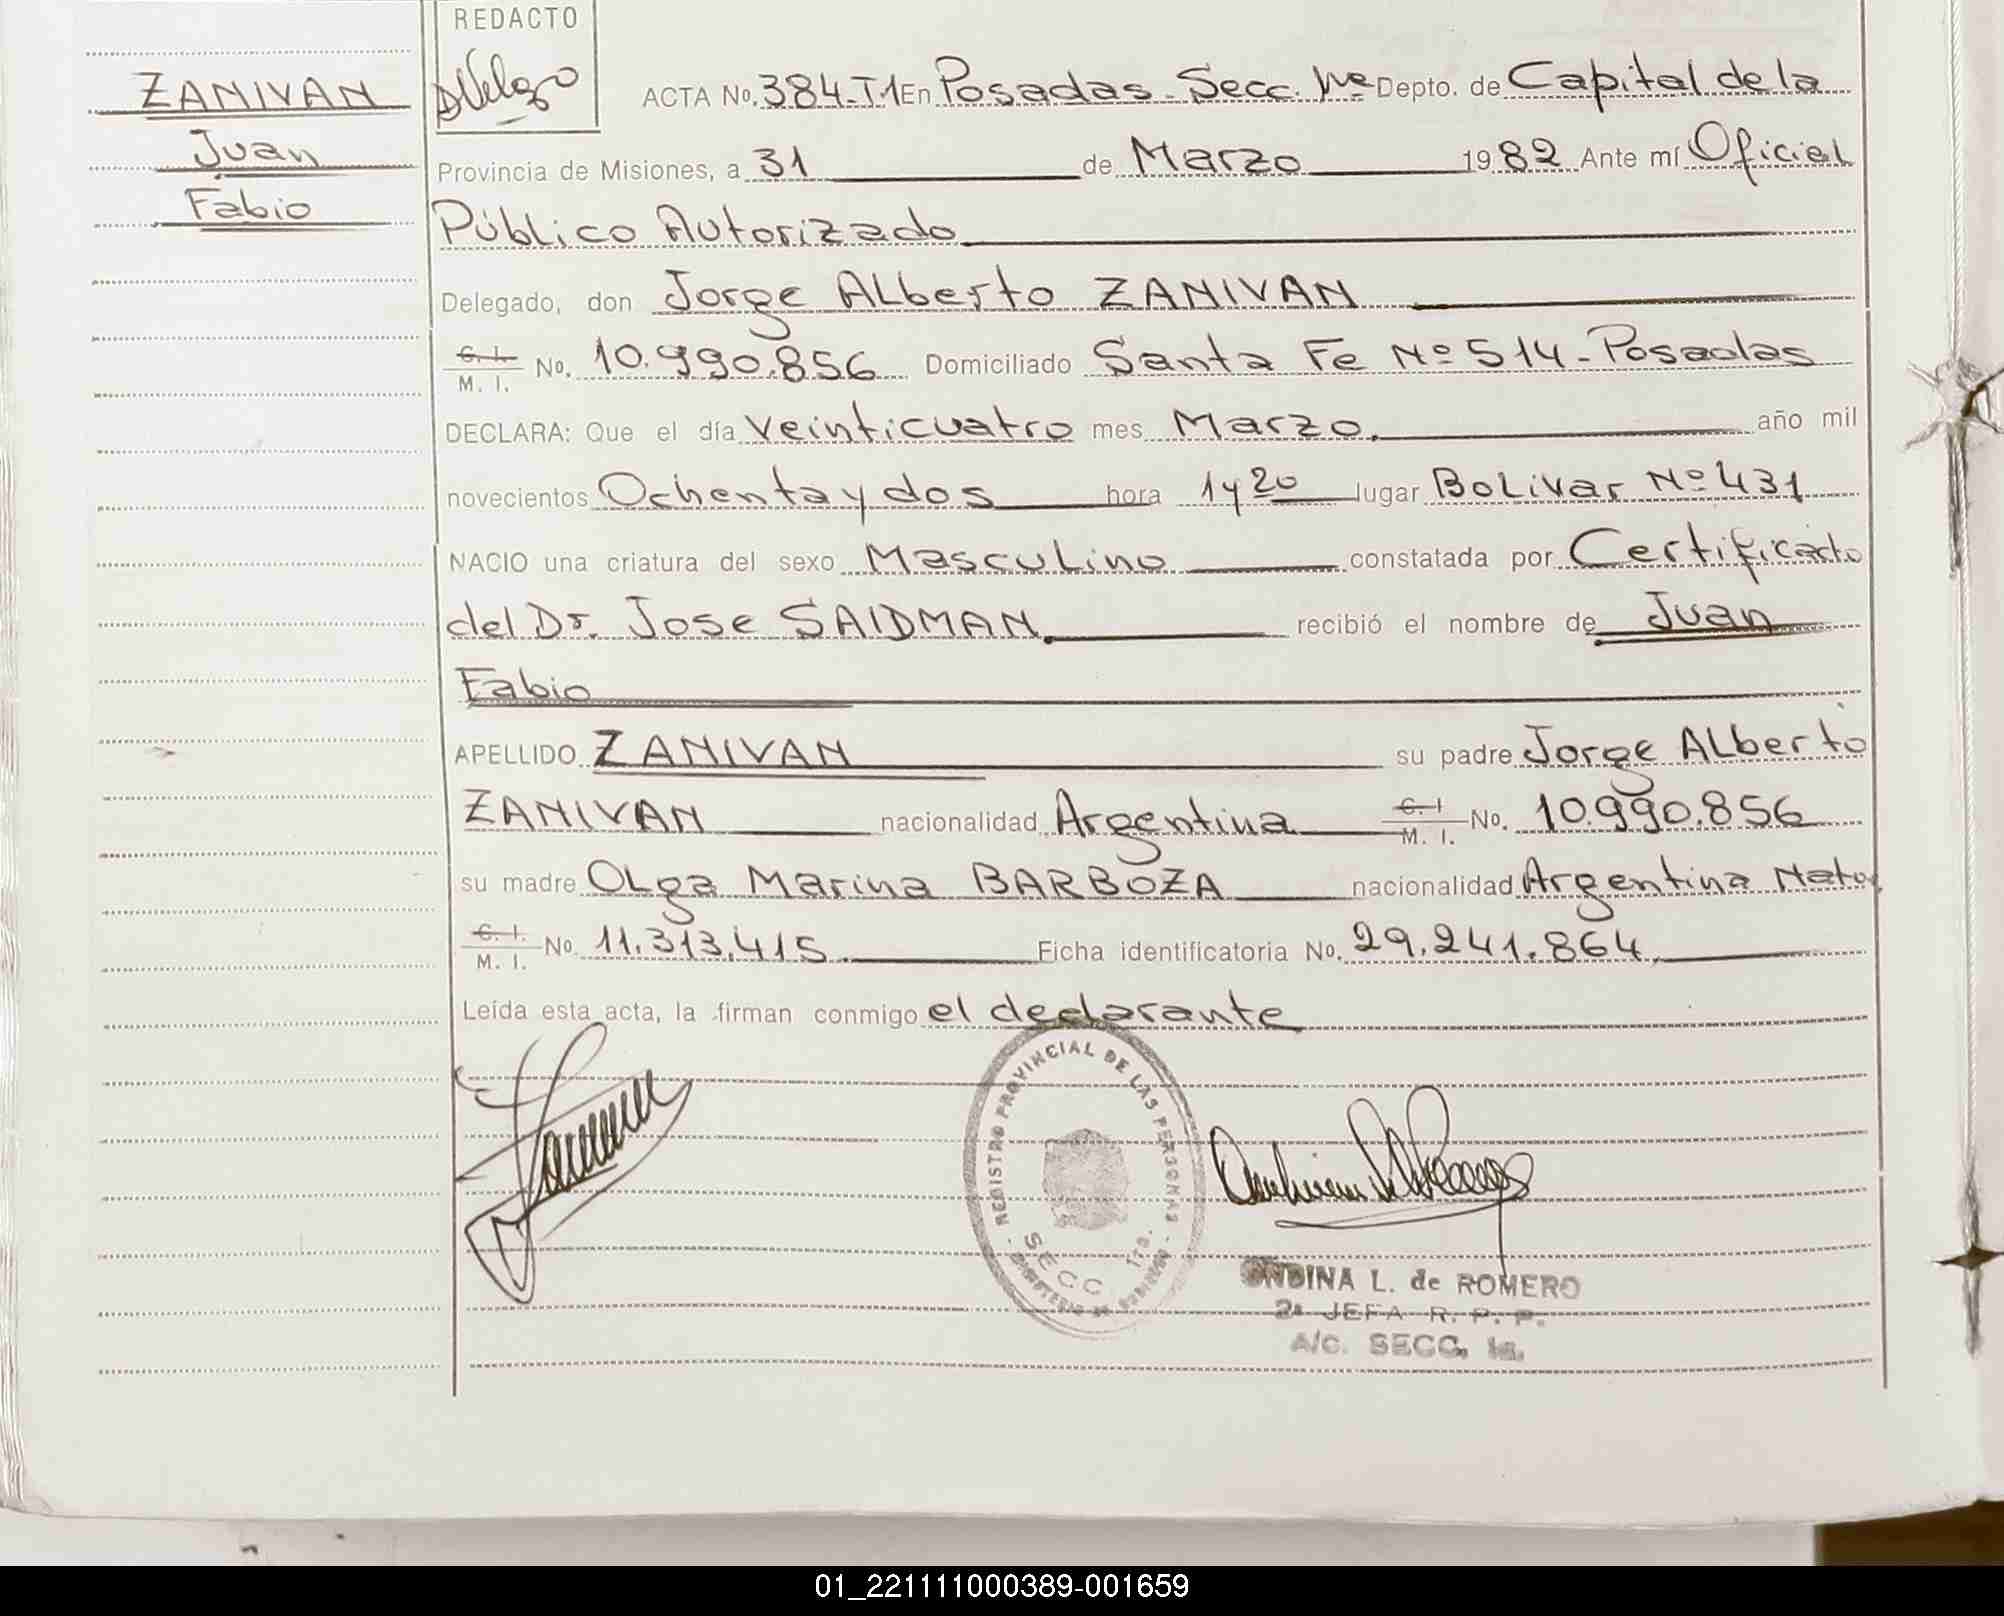 REDACTO
ZANIVAN
Juan
Fabio
ACTA No. 384-T1 En Posadas - Secc. 1ra Depto. de Capital de la
Provincia de Misiones, a 31 de Marzo 1982 Ante mí Oficial
Público Autorizado
Delegado, don Jorge Alberto ZANIVAN
C. I. / M. I. No. 10.990.856 Domiciliado Santa Fe Nº 514 - Posadas
DECLARA: Que el día veinticuatro mes Marzo. año mil
novecientos Ochenta y dos hora 1 y 20 lugar Bolivar Nº 431
NACIO una criatura del sexo Masculino constatada por Certificado
del Dr. Jose SAIDMAN. recibió el nombre de Juan
Fabio
APELLIDO ZANIVAN su padre Jorge Alberto
ZANIVAN nacionalidad Argentina C. I / M. I. No. 10.990.856
su madre Olga Marina BARBOZA nacionalidad Argentina Nato
C. I. / M. I. No. 11.313.415 Ficha identificatoria No. 29.241.864
Leída esta acta, la firman conmigo el declarante
REGISTRO PROVINCIAL DE LAS PERSONAS
SECC 1ra.
ONDINA L. de ROMERO
2a JEFA R. P. P.
A/C. SECC. 1a.
01_221111000389-001659